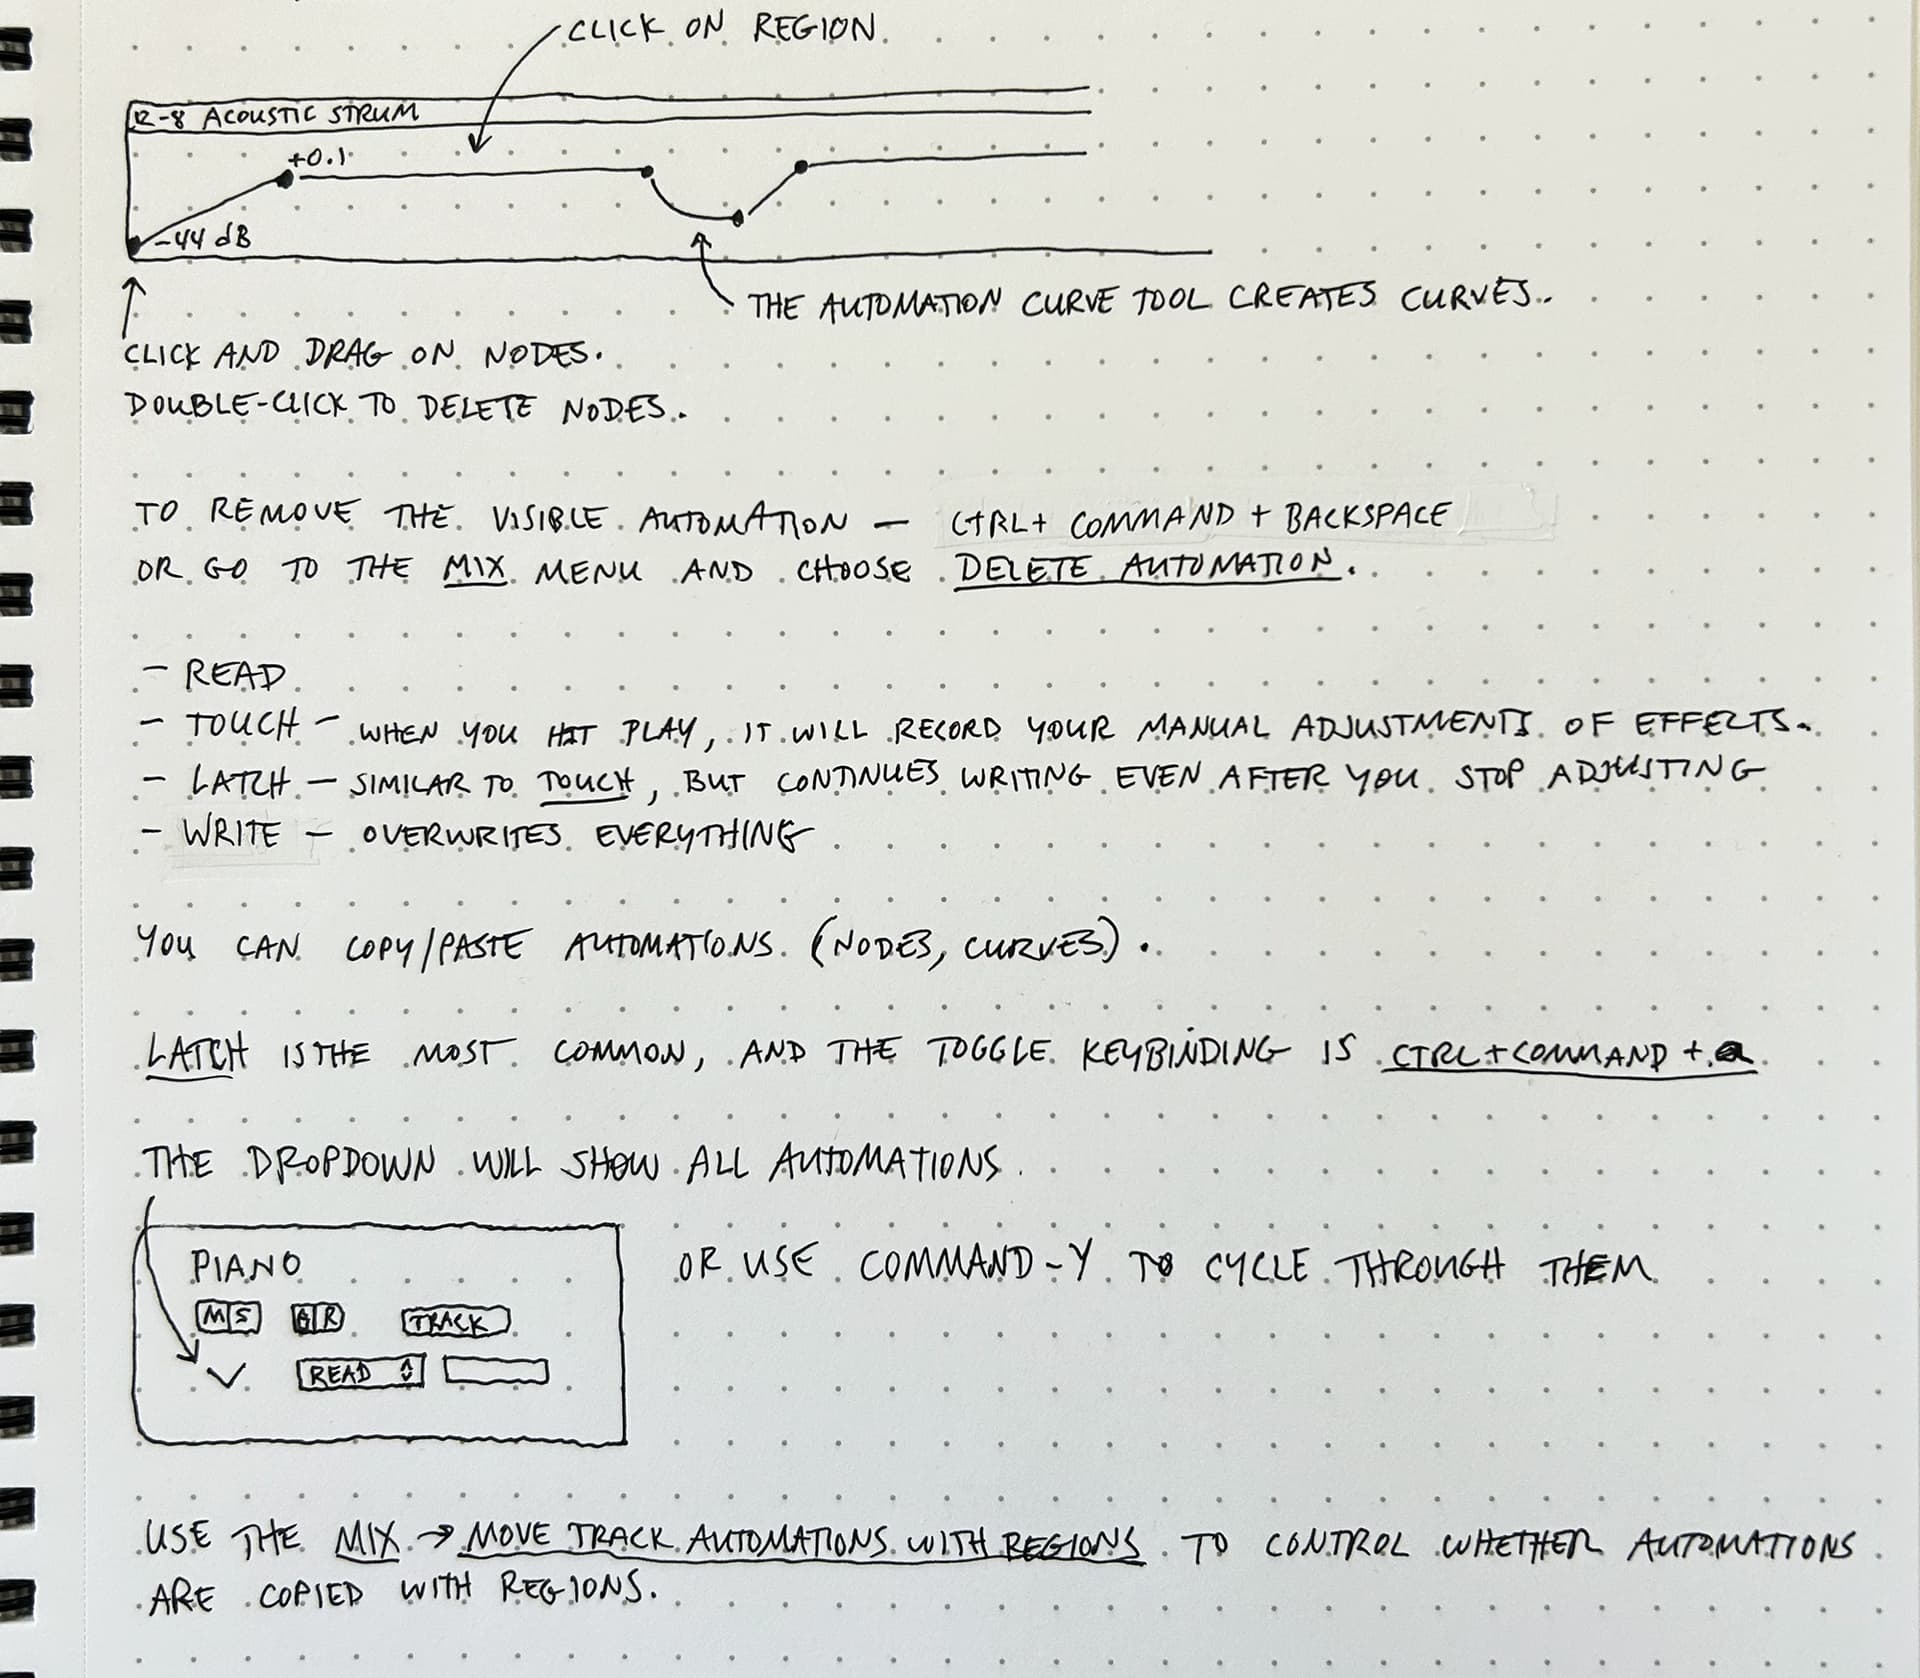 CLICK ON REGION.
R-8 ACOUSTIC STRUM
+0.1
-44 dB
THE AUTOMATION CURVE TOOL CREATES CURVES.
CLICK AND DRAG ON NODES.
DOUBLE-CLICK TO DELETE NODES.
TO REMOVE THE VISIBLE AUTOMATION — CTRL+ COMMAND + BACKSPACE
OR GO TO THE MIX MENU AND CHOOSE DELETE AUTOMATION.
- READ
- TOUCH - WHEN YOU HIT PLAY, IT WILL RECORD YOUR MANUAL ADJUSTMENTS OF EFFECTS.
- LATCH - SIMILAR TO TOUCH, BUT CONTINUES WRITING EVEN AFTER YOU STOP ADJUSTING
- WRITE - OVERWRITES EVERYTHING
YOU CAN COPY/PASTE AUTOMATIONS (NODES, CURVES).
LATCH IS THE MOST COMMON, AND THE TOGGLE KEYBINDING IS CTRL+COMMAND+a
THE DROPDOWN WILL SHOW ALL AUTOMATIONS.
PIANO
M S R TRACK
READ
OR USE COMMAND-Y TO CYCLE THROUGH THEM
USE THE MIX → MOVE TRACK AUTOMATIONS WITH REGIONS TO CONTROL WHETHER AUTOMATIONS
ARE COPIED WITH REGIONS.